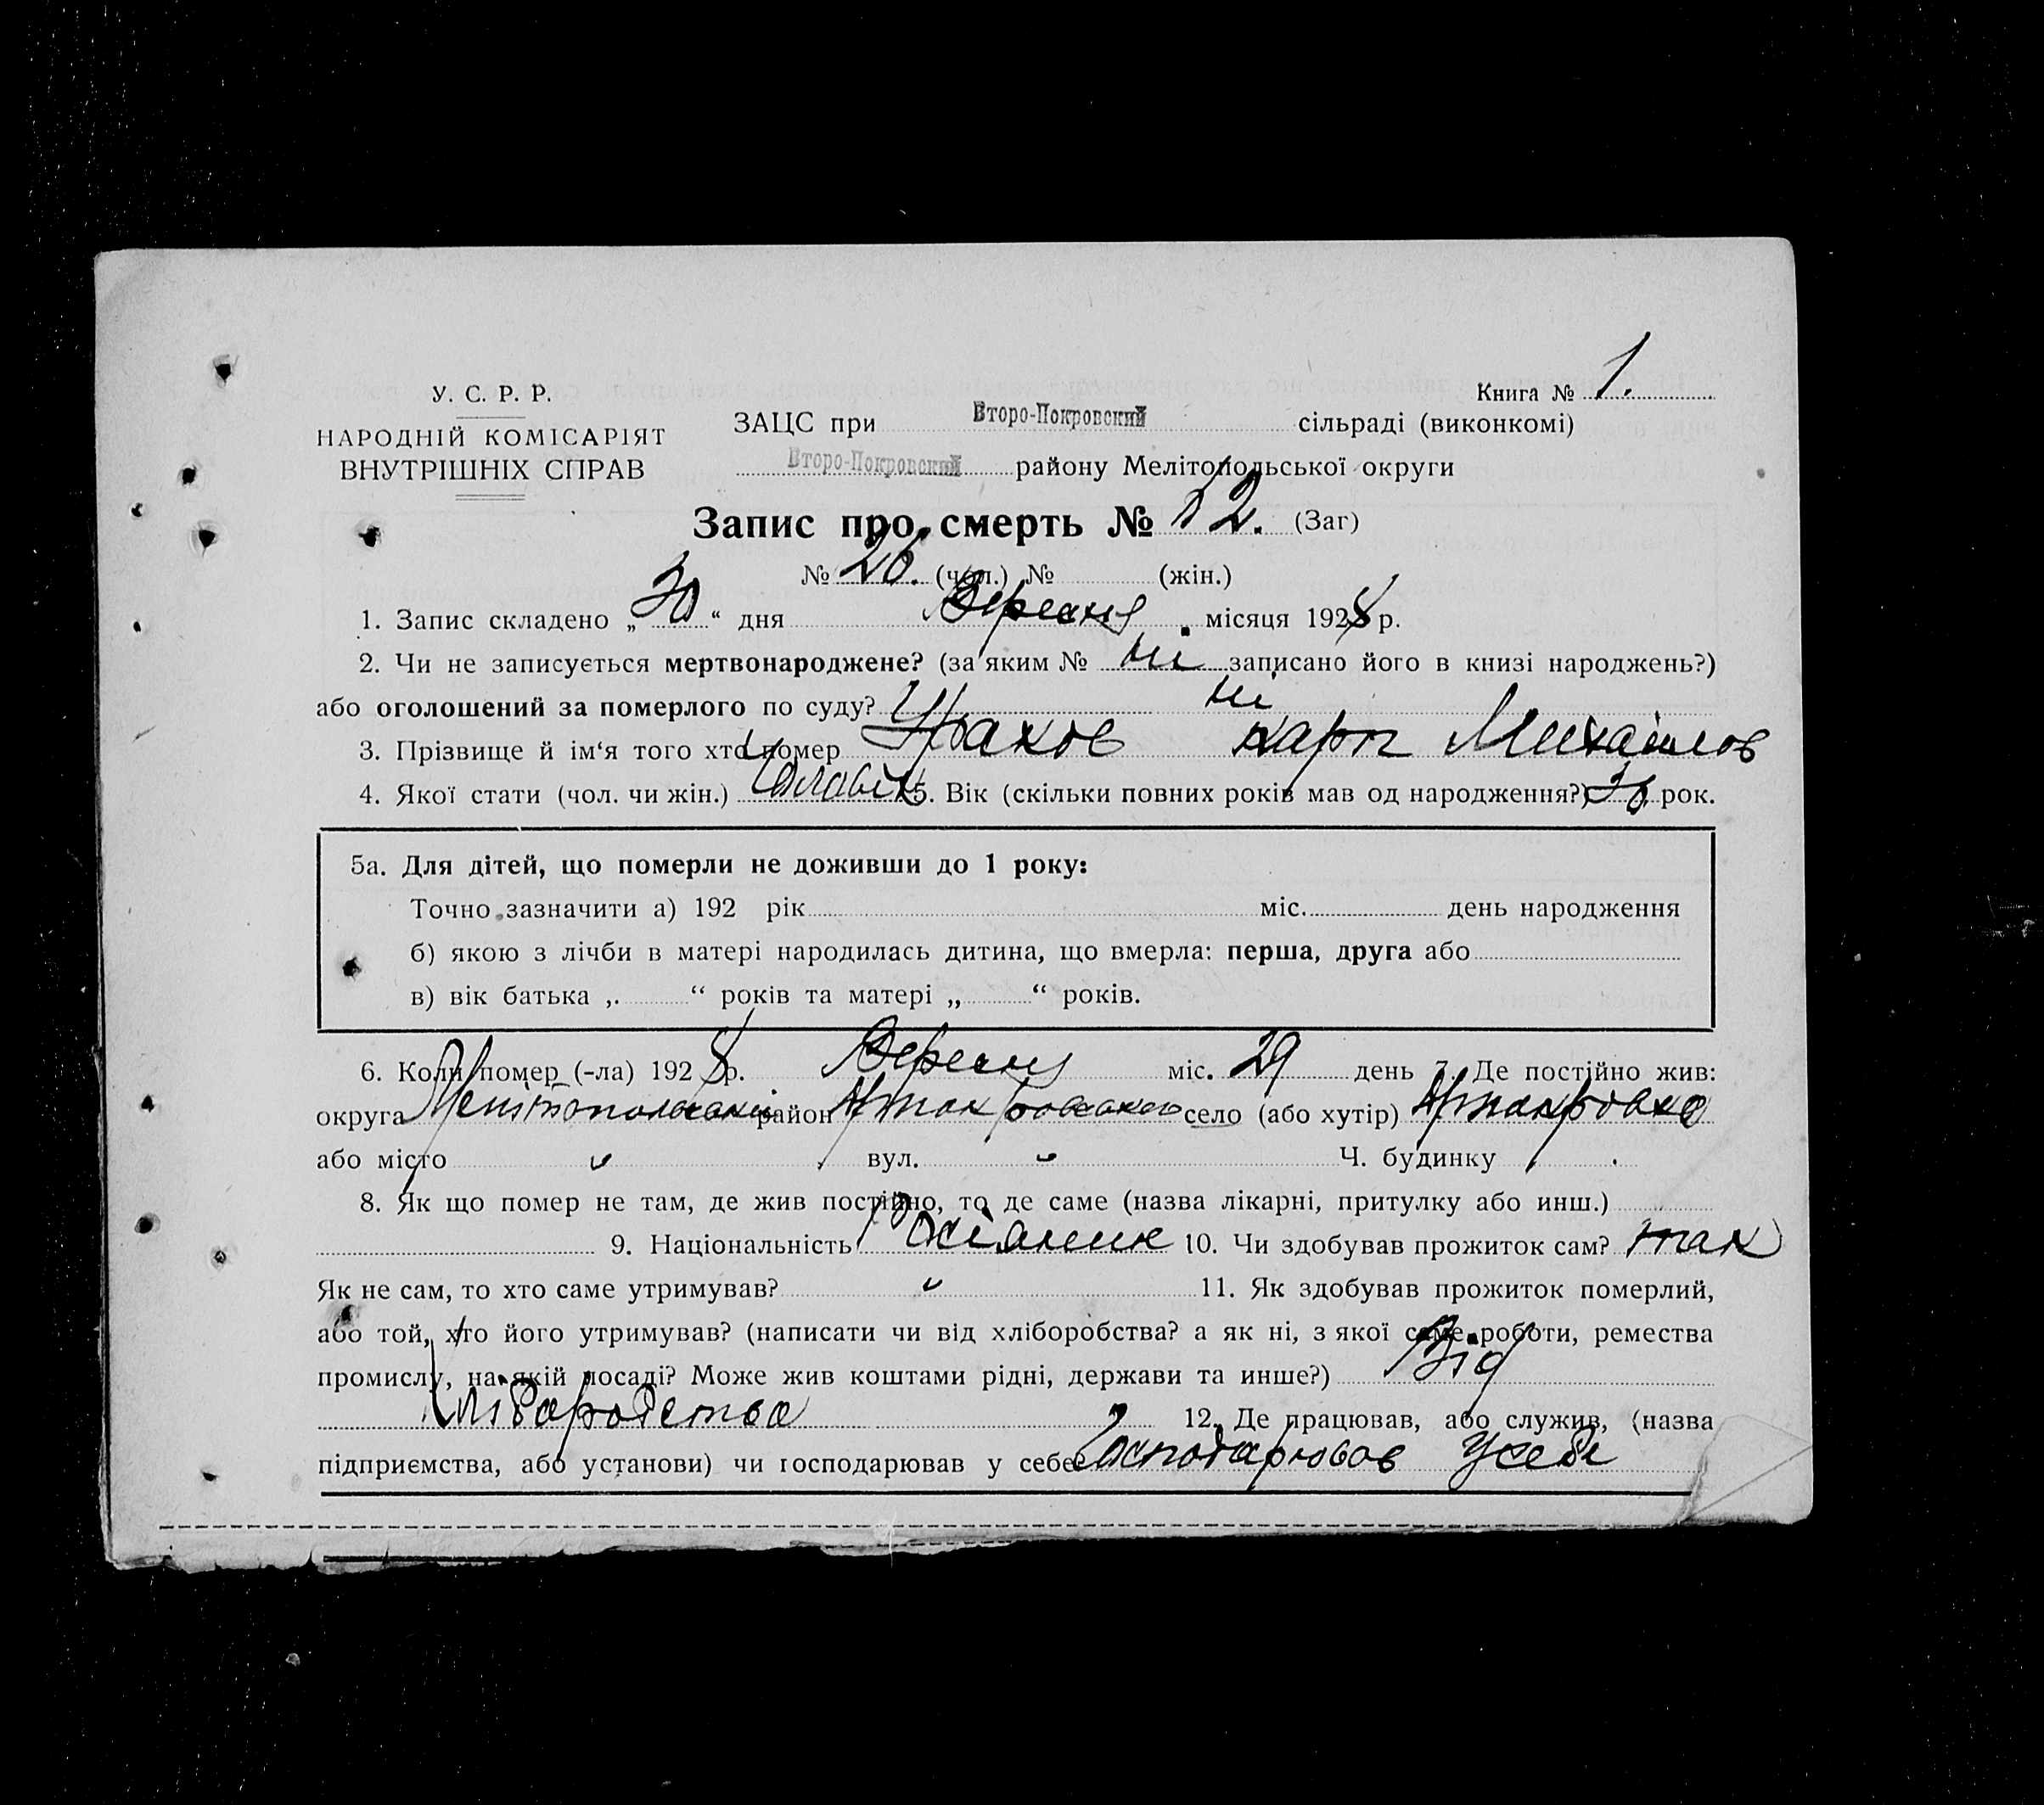 Книга № 1.
У. С. Р. Р.
НАРОДНІЙ КОМІСАРІЯТ
ВНУТРІШНІХ СПРАВ
ЗАЦС при Второ-Покровский сільраді (виконкомі)
Второ-Покровский району Мелітопольської округи
Запис про смерть № 52. (Заг)
№ 26. (чол.) № (жін.)
1. Запис складено „30“ дня Вересня місяця 1928 р.
2. Чи не записується мертвонароджене? (за яким № ні записано його в книзі народжень?)
або оголошений за померлого по суду? ні
3. Прізвище й ім‘я того хто помер Карп Михайлов
4. Якої стати (чол. чи жін.) Чоловік 5. Вік (скільки повних років мав од народження?) рок.
5а. Для дітей, що померли не доживши до 1 року:
Точно зазначити а) 192 рік міс. день народження
б) якою з лічби в матері народилась дитина, що вмерла: перша, друга або
в) вік батька „ “ років та матері „ “ років.
6. Коли помер (-ла) 1928 р. Вересня міс. 29 день 7. Де постійно жив:
округа Мелітопольській район село (або хутір)
або місто вул. Ч. будинку
8. Як що помер не там, де жив постійно, то де саме (назва лікарні, притулку або инш.)
9. Національність Росіянин 10. Чи здобував прожиток сам? так
Як не сам, то хто саме утримував? 11. Як здобував прожиток померлий,
або той, хто його утримував? (написати чи від хліборобства? а як ні, з якої саме роботи, ремества
промислу, на якій посаді? Може жив коштами рідні, держави та инше?) Від
хліборобства 12. Де працював, або служив, (назва
підприємства, або установи) чи господарював у себе Господарював у себе